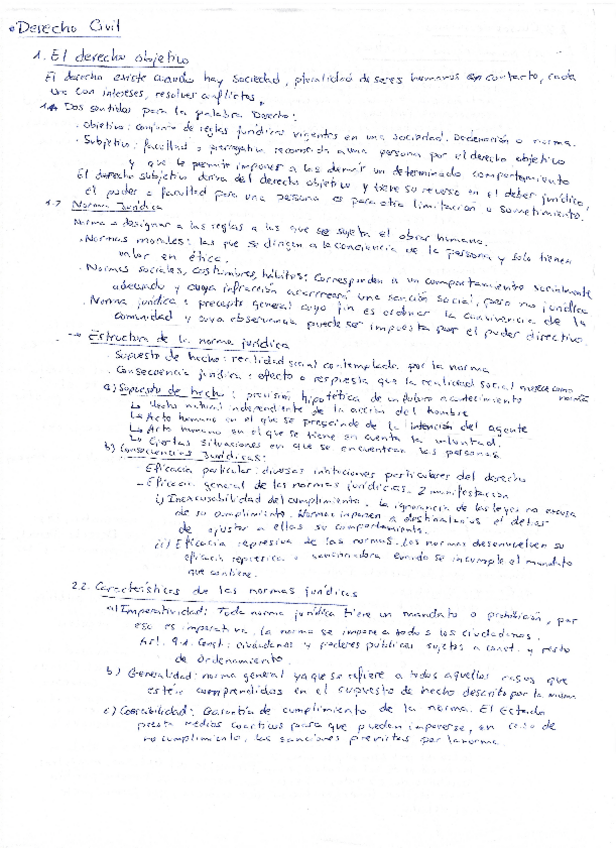 • Derecho Civil
1. El derecho objetivo
El derecho existe cuando hay sociedad, pluralidad de seres humanos en contacto, cada
uno con intereses, resolver conflictos.
1.1 Dos sentidos para la palabra Derecho:
· Objetivo: conjunto de reglas jurídicas vigentes en una sociedad. Ordenación o norma.
· Subjetivo: facultad o prerrogativa reconocida a una persona por el derecho objetivo
y que le permite imponer a los demás un determinado comportamiento
El derecho subjetivo deriva del derecho objetivo y tiene su reverso en el deber jurídico,
el poder o facultad para una persona es para otra limitación o sometimiento.
1.2 Norma Jurídica
Norma → designar a las reglas a las que se sujeta el obrar humano.
· Normas morales: las que se dirigen a la conciencia de la persona y solo tienen
valor en ética.
· Normas sociales, costumbres, hábitos: Corresponden a un comportamiento socialmente
adecuado y cuya infracción acarreará una sanción social, pero no jurídica
· Norma jurídica: precepto general cuyo fin es ordenar la convivencia de la
comunidad y cuya observancia puede ser impuesta por el poder directivo.
→ Estructura de la norma jurídica
· Supuesto de hecho: realidad social contemplada por la norma
· Consecuencia jurídica: efecto o respuesta que la realidad social merece como
norma
a) Supuesto de hecho: previsión hipotética de un futuro acontecimiento
↳ Hecho natural independiente de la acción del hombre
↳ Acto humano en el que se prescinde de la intención del agente
↳ Acto humano en el que se tiene en cuenta la voluntad.
↳ Ciertas situaciones en que se encuentran las personas
b) Consecuencias Jurídicas:
- Eficacia particular: diversas instituciones particulares del derecho
- Eficacia general de las normas jurídicas. 2 manifestación
i) Inexcusabilidad del cumplimiento. La ignorancia de las leyes no excusa
de su cumplimiento. Normas imponen a destinatarios el deber
de ajustar a ellas su comportamiento.
ii) Eficacia represiva de las normas. Las normas desenvuelven su
eficacia represiva o sancionadora cuando se incumple el mandato
que contiene.
2.2. Características de las normas jurídicas
a) Imperatividad: Toda norma jurídica tiene un mandato o prohibición, por
eso es imperativa. La norma se impone a todos los ciudadanos.
Art. 9.1. Const: ciudadanos y poderes públicos sujetos a const. y resto
de ordenamiento.
b) Generalidad: norma general ya que se refiere a todos aquellos casos que
estén comprendidos en el supuesto de hecho descrito por la norma
c) Coercibilidad: Garantía de cumplimiento de la norma. El Estado
presta medios coactivos para que puedan imponerse, en caso de
no cumplimiento, las sanciones previstas por la norma.